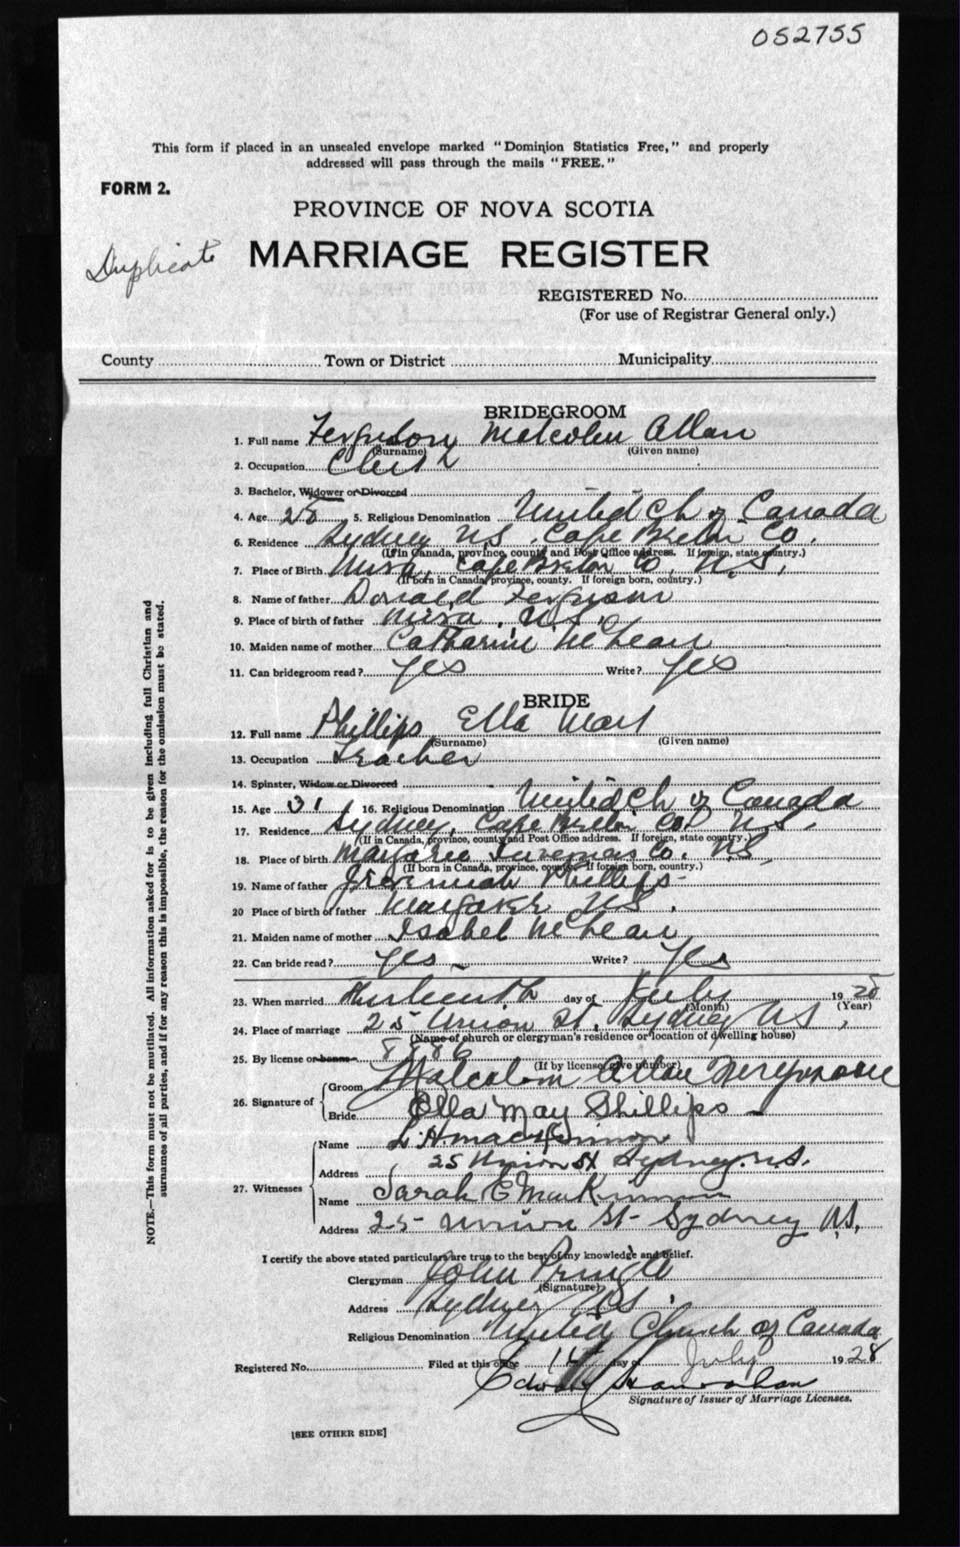 052755
This form if placed in an unsealed envelope marked "Dominion Statistics Free," and properly
addressed will pass through the mails "FREE."
FORM 2.
PROVINCE OF NOVA SCOTIA
Duplicate
MARRIAGE REGISTER
REGISTERED No.
(For use of Registrar General only.)
County Town or District Municipality
BRIDEGROOM
1. Full name Ferguson Malcolm Allan
(Surname) (Given name)
2. Occupation Clerk
3. Bachelor, Widower or Divorced
4. Age 28 5. Religious Denomination United Ch of Canada
6. Residence Sydney N.S. Cape Breton Co.
(If in Canada, province, county and Post Office address. If foreign, state country.)
7. Place of Birth Mira, Cape Breton Co. N.S.
(If born in Canada, province, county. If foreign born, country.)
8. Name of father Donald Ferguson
9. Place of birth of father Mira, N.S.
10. Maiden name of mother Catharine McLean
11. Can bridegroom read? Yes Write? Yes
BRIDE
12. Full name Phillips Ella May
(Surname) (Given name)
13. Occupation Teacher
14. Spinster, Widow or Divorced
15. Age 31 16. Religious Denomination United Ch of Canada
17. Residence Sydney, Cape Breton Co. N.S.
(If in Canada, province, county and Post Office address. If foreign, state country.)
18. Place of birth Margaree Inverness Co. N.S,
(If born in Canada, province, county. If foreign born, country.)
19. Name of father Jeremiah Phillips
20 Place of birth of father N.S.
21. Maiden name of mother Isabel McLean
22. Can bride read? Yes Write? Yes
23. When married thirteenth day of July 1928
(Month) (Year)
24. Place of marriage 25 Union St. Sydney N.S,
(Name of church or clergyman's residence or location of dwelling house)
25. By license or banns 8886
(If by license, give number)
26. Signature of
Groom Malcolm Allan
Bride Ella May Phillips
27. Witnesses
Name L. H MacKinnon
Address 25 Union St Sydney. N.S.
Name Sarah E MacKinnon
Address 25 Union St- Sydney N.S.
I certify the above stated particulars are true to the best of my knowledge and belief.
Clergyman John Pringle
(Signature)
Address Sydney N.S.
Religious Denomination United Church of Canada
Registered No. Filed at this office 14 day of July 1928
Edward
Signature of Issuer of Marriage Licenses.
[SEE OTHER SIDE]
NOTE.—This form must not be mutilated. All information asked for is to be given including full Christian and
surnames of all parties, and if for any reason this is impossible, the reason for the omission must be stated.